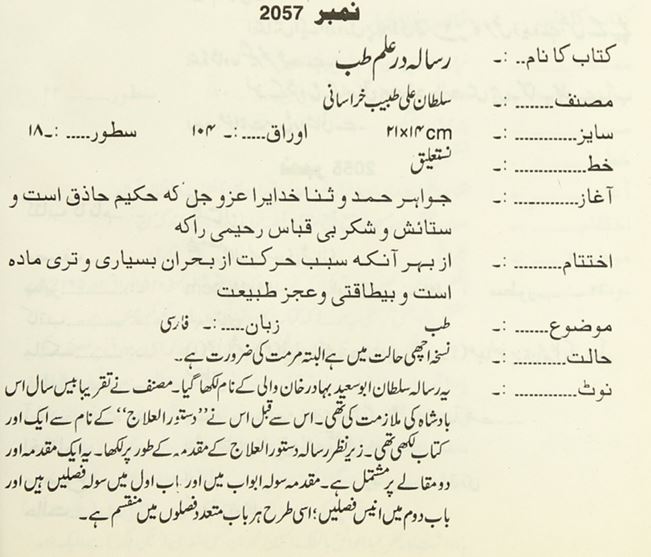 نمبر 2057
کتاب کا نام.. :۔ رسالہ در علم طب
مصنف......... :۔ سلطان علی طبیب خراسانی
سایز........... :۔ ۲۱×۱۴cm اوراق..... :۔ ۱۰۴ سطور..... :۔ ۱۸
خط............. :۔ نستعلیق
آغاز............ :۔ جواہر حمد و ثنا خدایرا عزوجل کہ حکیم حاذق است و
ستائش و شکر بی قیاس رحیمی راکہ
اختتام.......... :۔ از بہر آنکہ سبب حرکت از بحران بسیاری و تری مادہ
است و بیطاقتی و عجز طبیعت
موضوع...... :۔ طب زبان..... :۔ فارسی
حالت.......... :۔ نسخہ اچھی حالت میں ہے البتہ مرمت کی ضرورت ہے۔
نوٹ........... :۔ یہ رسالہ سلطان ابو سعید بہادر خان والی کے نام لکھا گیا۔ مصنف نے تقریباً بیس سال اس
بادشاہ کی ملازمت کی تھی۔ اس سے قبل اس نے ’’دستور العلاج‘‘ کے نام سے ایک اور
کتاب لکھی تھی۔ زیر نظر رسالہ دستور العلاج کے مقدمہ کے طور پر لکھا۔ یہ ایک مقدمہ اور
دو مقالے پر مشتمل ہے۔ مقدمہ سولہ ابواب میں اور باب اول میں سولہ فصلیں ہیں اور
باب دوم میں انیس فصلیں؛ اسی طرح ہر باب متعدد فصلوں میں منقسم ہے۔